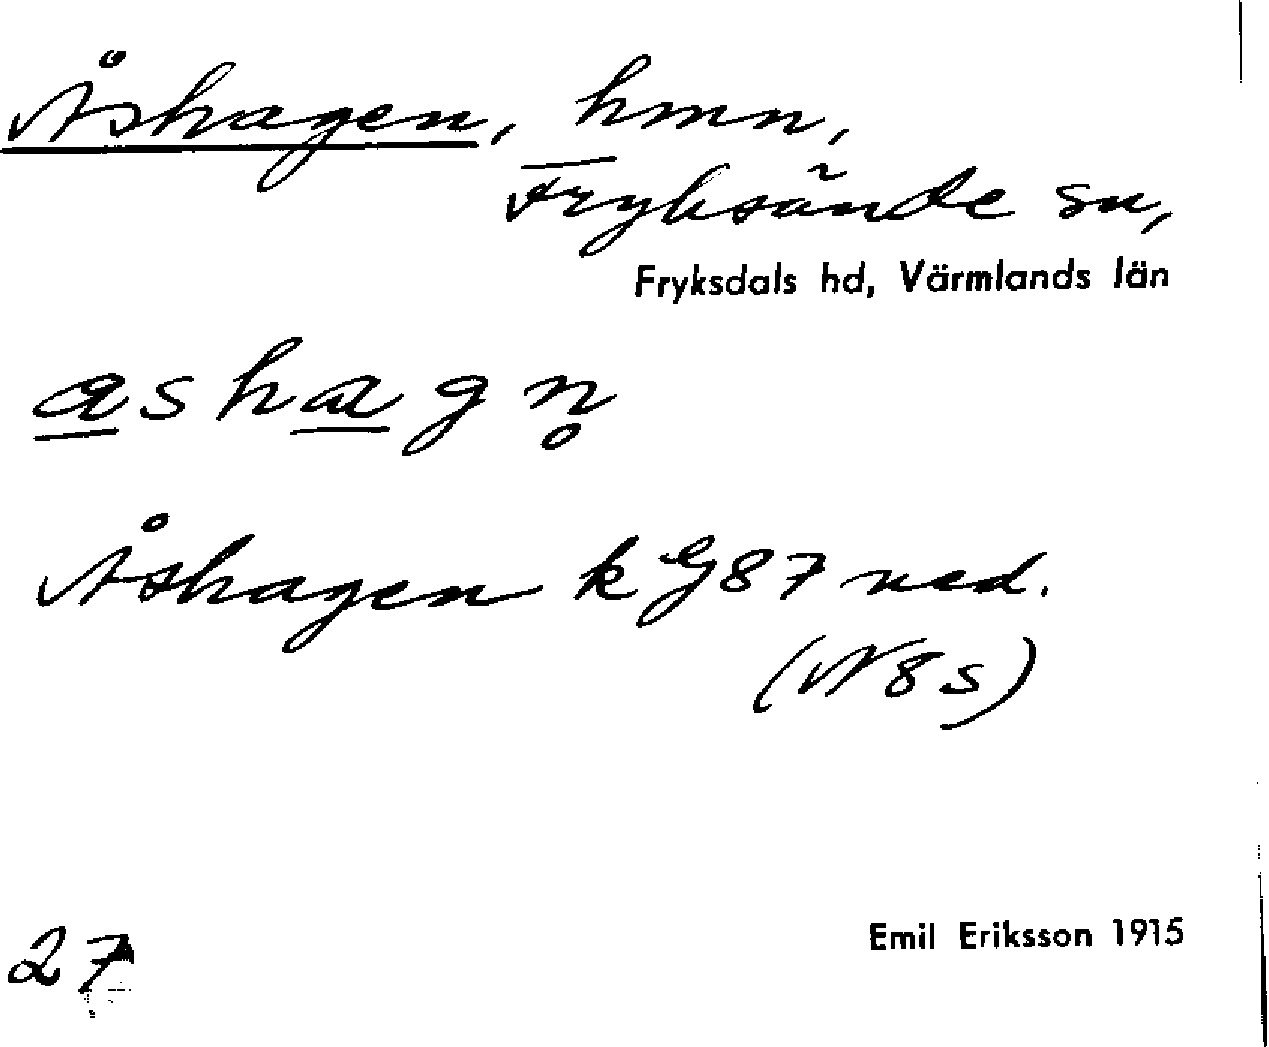 Åshagen, hmn,
Fryksände sn,
Fryksdals hd, Värmlands län
a̲sha̲gn̥
Åshagen k G87 ned.
(N 8 s)
27
Emil Eriksson 1915